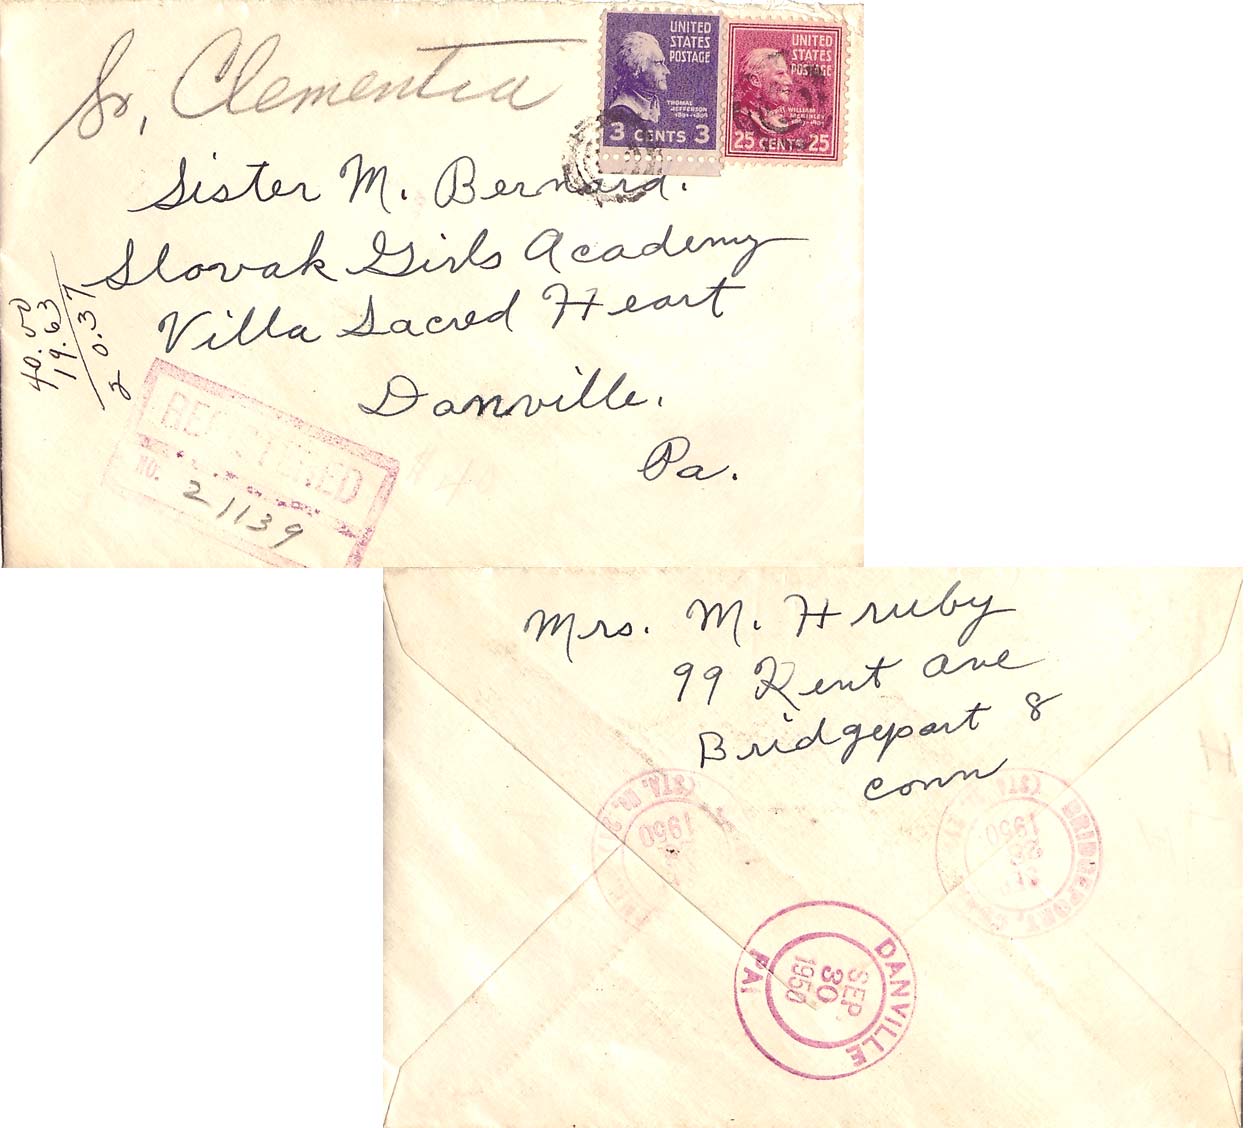 Sr. Clementia
UNITED
STATES
POSTAGE
THOMAS
JEFFERSON
3 CENTS 3
UNITED
STATES
POSTAGE
WILLIAM
McKINLEY
25 CENTS 25
Sister M. Bernard.
Slovak Girls Academy
Villa Sacred Heart
Danville.
Pa.
40.00
19.63
20.37
REGISTERED
NO. 21139
$40
Mrs. M. Hruby
99 Kent Ave
Bridgeport 8
Conn
(STA. NO.
1950
BRIDGEPORT,
(STA.
1950
DANVILLE
PA.
SEP
30
1950